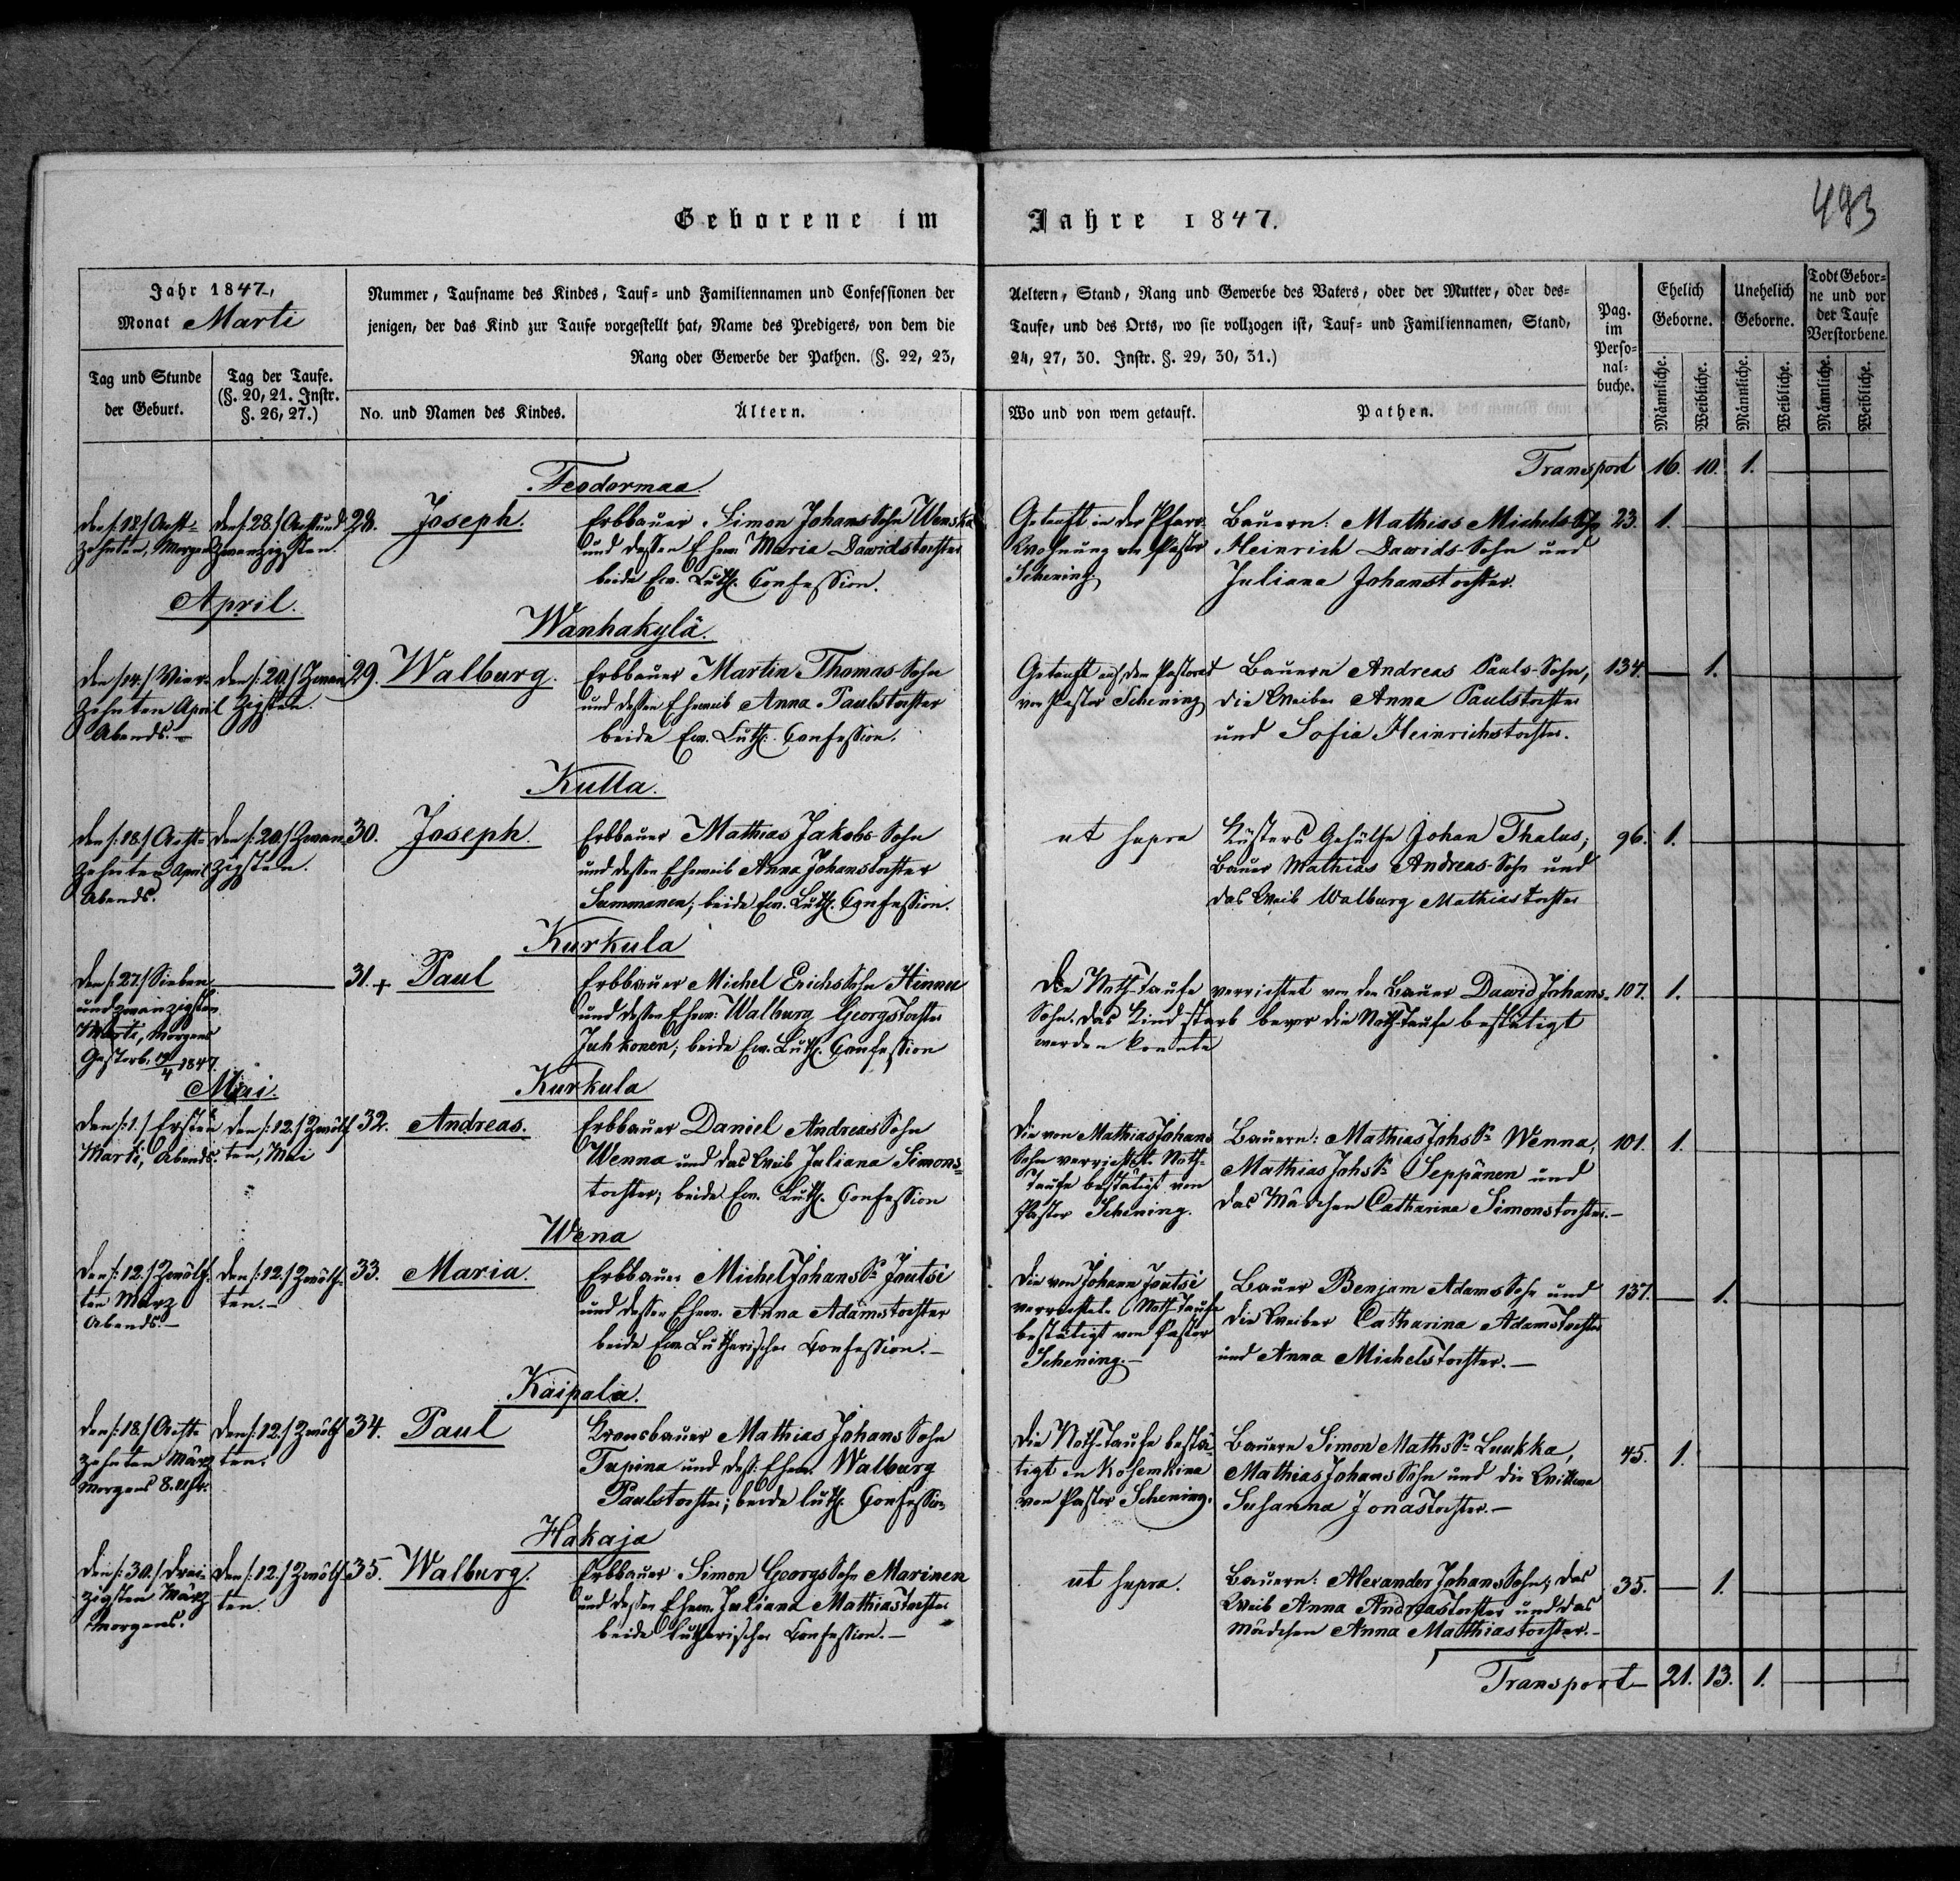 493
Geborene im Jahre 1847.
Jahr 1847,
Monat Marti
Tag und Stunde
der Geburt.
Tag der Taufe.
(§. 20, 21. Instr.
§. 26, 27.)
Nummer, Taufname des Kindes, Tauf- und Familiennamen und Confessionen der
jenigen, der das Kind zur Taufe vorgestellt hat, Name des Predigers, von dem die
Rang oder Gewerbe der Pathen. (§. 22, 23,
No. und Namen des Kindes.
Ältern.
Aeltern, Stand, Rang und Gewerbe des Vaters, oder der Mutter, oder des=
Taufe, und des Orts, wo sie vollzogen ist, Tauf- und Familiennamen, Stand,
24, 27, 30. Instr. §. 29, 30, 31.)
Wo und von wem getauft.
Pathen.
Pag.
im
Perso=
nal=
buche.
Ehelich
Geborne.
Unehelich
Geborne.
Todt Gebor=
ne und vor
der Taufe
Verstorbene.
Männliche.
Weibliche.
Männliche.
Weibliche.
Männliche.
Weibliche.
Transport 16. 10. 1.
Feodormaa
den /:18./ Acht-
zehnten, Morgens
den /:28./ Acht und
zwanzigsten.
28. Joseph.
Erbbauer Simon Johans Sohn Wenska
und dessen Ehew. Maria Davidstochter
beide Ev. Luth. Confession.
Getauft in der Pfarr-
Wohnung von Pastor
Schening
Bauern: Mathias Michels Sohn
Heinrich Davids-Sohn und
Juliana Johanstochter.
23. 1.
April.
Wanhakylä.
den /:14./ Vier-
zehnten April
Abends.-
den /:20./ Zwan
zigsten.
29. Walburg.
Erbbauer Martin Thomas-Sohn
und dessen Eheweib Anna Paulstochter
beide Ev. Luth. Confession.
Getauft auf dem Pastorat
von Pastor Schening
Bauern Andreas Pauls-Sohn,
die Weiber Anna Paulstochter
und Sofia Heinrichstochter.
134. 1.
Kulla.
den /:18./ Acht-
zehnten April
Abends.
den /:20./ Zwan
zigsten.
30. Joseph.
Erbbauer Mathias Jakobs-Sohn
und dessen Eheweib Anna Johanstochter
Summanen; beide Ev. Luth. Confession.
ut supra
Küsters Gehülfe Johan Thalus,
Bauer Mathias Andreas-Sohn und
das Weib Walburg Mathiastochter
96. 1.
Kurkula
den /:27./ Sieben
und zwanzigsten
Marti, Morgens
Gestorb. 19/4 1847.
31. + Paul
Erbbauer Michel Erichs Sohn Hinnu
und dessen Ehew: Walburg Georgs Tochter
Juhkonen; beide Ev. Luth. Confession
Die Noth-Taufe verrichtet von den Bauer David Johans-
Sohn. Das Kind starb bevor die Noth-Taufe bestätigt
werden konnte
107. 1.
Mai.
Kurkula
den /:1./ Ersten
Marti, Abends.
den /:12./ Zwölf
ten, Mai
32. Andreas.
Erbbauer Daniel Andreas Sohn
Wenna und das Weib Juliana Simons=
tochter; beide Ev. Luth. Confession
Die von Mathias Johans
Sohn verrichtete Noth-
Taufe bestätigt von
Pastor Schening.
Bauern: Mathias Johs Sn Wenna,
Mathias Johs Sn Seppänen und
das Mädchen Catharina Simonstochter.-
101. 1.
Wena
den /:12./ Zwölf-
ten März
Abends.-
den /:12./ Zwölf-
ten.-
33. Maria.
Erbbauer Michel Johans Sn Joutsi
und dessen Ehew. Anna Adamstochter
beide Ev. Lutherischer Confession.-
Die von Johann Joutsi
verrichtete Noth-Taufe
bestätigt von Pastor
Schening.-
Bauer Benjam Adams Sohn und
die Weiber Catharina Adams Tochter
und Anna Michelstochter.-
137. 1.
Kaipala.
den /:18./ Acht-
zehnten März
Morgens 8. Uhr.
den /:12./ Zwölf
ten.
34. Paul
Kronsbauer Mathias Johans Sohn
Tupina und dess: Ehew. Walburg
Paulstochter; beide luth. Confession
Die Noth-Taufe bestä-
tigt in Kosemkina
von Pastor Schening.
Bauern Simon Maths Sn Luukka,
Mathias Johans Sohn und die Wittwe
Susanna Jonastochter.-
45. 1.
Hakaja
den /:30./ drei-
zigsten März
Morgens.
den /:12./ Zwölf-
ten.
35. Walburg.
Erbbauer Simon Georgs Sohn Marinen
und dessen Ehew. Juliana Mathiastochter
beide lutherischer Confession.-
ut supra.
Bauern: Alexander Johans Sohn; das
Weib Anna Andreas Tochter und das
Mädchen Anna Matthias tochter.-
35. 1.
Transport 21. 13. 1.